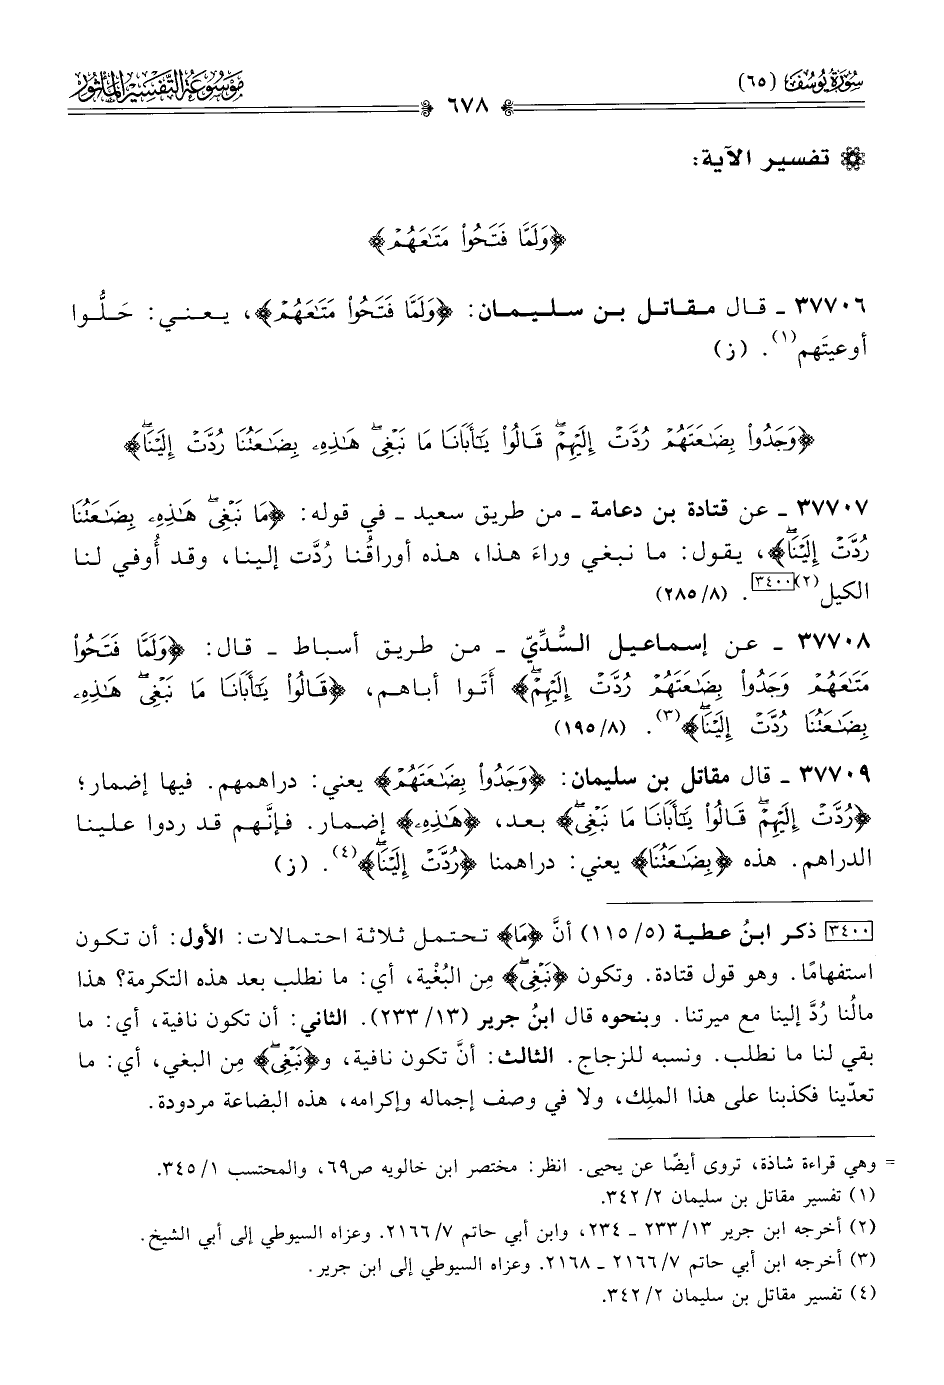 سُورَةُ يُوسُفَ (٦٥)
٦٧٨
مَوْسُوعَةُ التَّفْسِيرِ المَأْثُور
تفسير الآية:
﴿وَلَمَّا فَتَحُوا۟ مَتَـٰعَهُمْ﴾
٣٧٧٠٦ ـ قال مقاتل بن سليمان: ﴿وَلَمَّا فَتَحُوا۟ مَتَـٰعَهُمْ﴾، يعني: حَلُّوا
أوعيتَهم(١). (ز)
﴿وَجَدُوا۟ بِضَـٰعَتَهُمْ رُدَّتْ إِلَيْهِمْ ۖ قَالُوا۟ يَـٰٓأَبَانَا مَا نَبْغِى ۖ هَـٰذِهِۦ بِضَـٰعَتُنَا رُدَّتْ إِلَيْنَا ۖ﴾
٣٧٧٠٧ ـ عن قتادة بن دعامة ـ من طريق سعيد ـ في قوله: ﴿مَا نَبْغِى ۖ هَـٰذِهِۦ بِضَـٰعَتُنَا
رُدَّتْ إِلَيْنَا ۖ﴾، يقول: ما نبغي وراءَ هذا، هذه أوراقُنا رُدَّت إلينا، وقد أُوفي لنا
الكيل(٢)[٣٤٠٠]. (٨/ ٢٨٥)
٣٧٧٠٨ ـ عن إسماعيل السُّدِّيِّ ـ من طريق أسباط ـ قال: ﴿وَلَمَّا فَتَحُوا۟
مَتَـٰعَهُمْ وَجَدُوا۟ بِضَـٰعَتَهُمْ رُدَّتْ إِلَيْهِمْ ۖ﴾ أَتَوا أباهم، ﴿قَالُوا۟ يَـٰٓأَبَانَا مَا نَبْغِى ۖ هَـٰذِهِۦ
بِضَـٰعَتُنَا رُدَّتْ إِلَيْنَا ۖ﴾(٣). (٨/ ١٩٥)
٣٧٧٠٩ ـ قال مقاتل بن سليمان: ﴿وَجَدُوا۟ بِضَـٰعَتَهُمْ﴾ يعني: دراهمهم. فيها إضمار؛
﴿رُدَّتْ إِلَيْهِمْ ۖ قَالُوا۟ يَـٰٓأَبَانَا مَا نَبْغِى ۖ﴾ بعد، ﴿هَـٰذِهِۦ﴾ إضمار. فإنَّهم قد ردوا علينا
الدراهم. هذه ﴿بِضَـٰعَتُنَا﴾ يعني: دراهمنا ﴿رُدَّتْ إِلَيْنَا ۖ﴾(٤). (ز)
[٣٤٠٠] ذكر ابنُ عطية (٥/ ١١٥) أنَّ ﴿مَا﴾ تحتمل ثلاثة احتمالات: الأول: أن تكون
استفهامًا. وهو قول قتادة. وتكون ﴿نَبْغِى ۖ﴾ مِن البُغْية، أي: ما نطلب بعد هذه التكرمة؟ هذا
مالُنا رُدَّ إلينا مع ميرتنا. وبنحوه قال ابنُ جرير (١٣/ ٢٣٣). الثاني: أن تكون نافية، أي: ما
بقي لنا ما نطلب. ونسبه للزجاج. الثالث: أنَّ تكون نافية، و﴿نَبْغِى ۖ﴾ مِن البغي، أي: ما
تعدّينا فكذبنا على هذا الملِك، ولا في وصف إجماله وإكرامه، هذه البضاعة مردودة.
= وهي قراءة شاذة، تروى أيضًا عن يحيى. انظر: مختصر ابن خالويه ص٦٩، والمحتسب ١/ ٣٤٥.
(١) تفسير مقاتل بن سليمان ٢/ ٣٤٢.
(٢) أخرجه ابن جرير ١٣/ ٢٣٣ ـ ٢٣٤، وابن أبي حاتم ٧/ ٢١٦٦. وعزاه السيوطي إلى أبي الشيخ.
(٣) أخرجه ابن أبي حاتم ٧/ ٢١٦٦ ـ ٢١٦٨. وعزاه السيوطي إلى ابن جرير.
(٤) تفسير مقاتل بن سليمان ٢/ ٣٤٢.